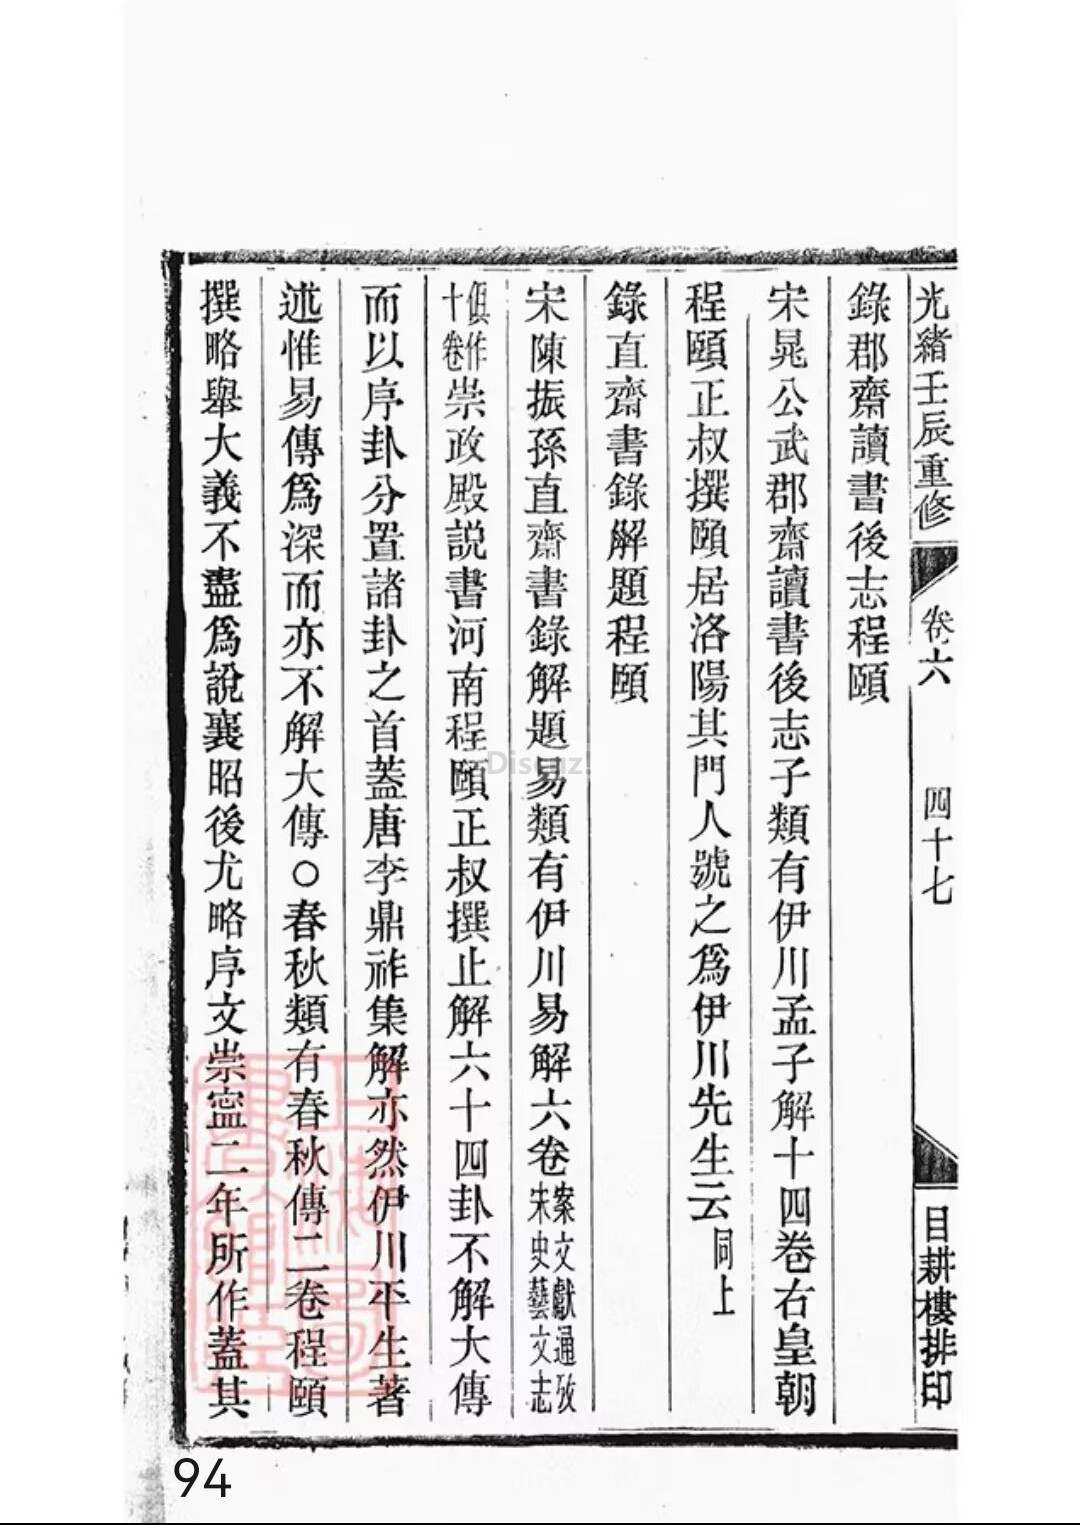 光緒壬辰重修 卷六 四十七 目耕樓排印
錄郡齋讀書後志程頤
宋晁公武郡齋讀書後志子類有伊川孟子解十四卷右皇朝
程頤正叔撰頤居洛陽其門人號之爲伊川先生云同上
錄直齋書錄解題程頤
宋陳振孫直齋書錄解題易類有伊川易解六卷案文獻通攷宋史藝文志
俱作十卷崇政殿說書河南程頤正叔撰止解六十四卦不解大傳
而以序卦分置諸卦之首蓋唐李鼎祚集解亦然伊川平生著
述惟易傳爲深而亦不解大傳○春秋類有春秋傳二卷程頤
撰略舉大義不盡爲說襄昭後尤略序文崇寍二年所作蓋其
Discuz!
94